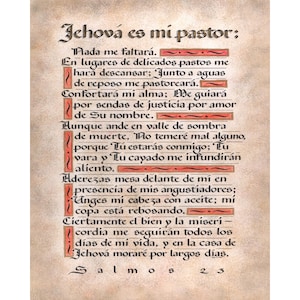 Jehová es mi pastor:
Nada me faltará.
En lugares de delicados pastos me
hará descansar; Junto a aguas
de reposo me pastoreará.
Confortará mi alma; Me guiará
por sendas de justicia por amor
de Su nombre.
Aunque ande en valle de sombra
de muerte, No temeré mal alguno,
porque Tú estarás conmigo; Tu
vara y Tu cayado me infundirán
aliento.
Aderezas mesa delante de mi en
presencia de mis angustiadores;
Unges mi cabeza con aceite; mi
copa está rebosando.
Ciertamente el bien y la miseri-
cordia me seguirán todos los
días de mi vida, y en la casa de
Jehová moraré por largos días.
Salmos 23